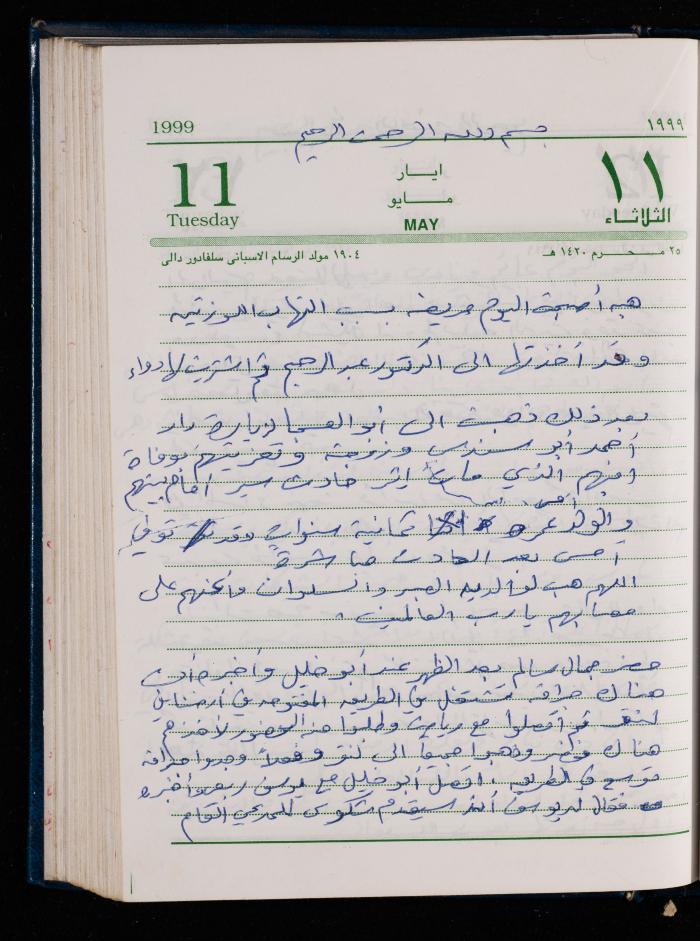 1999
بسم الله الرحمن الرحيم
١٩٩٩
11
Tuesday
ايار
مايو
MAY
١١
الثلاثاء
١٩٠٤ مولد الرسام الاسباني سلفادور دالي
٢٥ محرم ١٤٢٠ هـ
هبه أصبحت اليوم مريضه بسبب التهاب اللوزتين
وقد أخذتها الى الدكتور عبد الرحيم ثم اشتريت لها دواء
بعد ذلك ذهبت الى أبو العسجا لزيارة دار
أحمد أبو سندس وزوجته وتعزيتهم بوفاة
ابنهم الذي مات إثر حادث سير أمام بيتهم
أمس
والولد عمره ثمانية سنوات وقد توفي
أمس بعد الحادث مباشرة
اللهم هب لوالديه الصبر والسلوان وأعنهم على
مصابهم يا رب العالمين.
حضر جمال سالم بعد الظهر عند أبو خليل وأخبره أن
هناك جرافة تشتغل في الطريق المفتوحه في أرضنا في
لتقر ثم أتصلوا مع وطلبوا منه الحضور لأخذهم
هناك فحضر وذهبوا جميعا الى لتقر وفعلاً وجدوا جرافة
توسع في الطريق. اتصل أبو خليل مع يوسف وأخبره
فقال له يوسف أنه سيقدم شكوى للمدعي العام